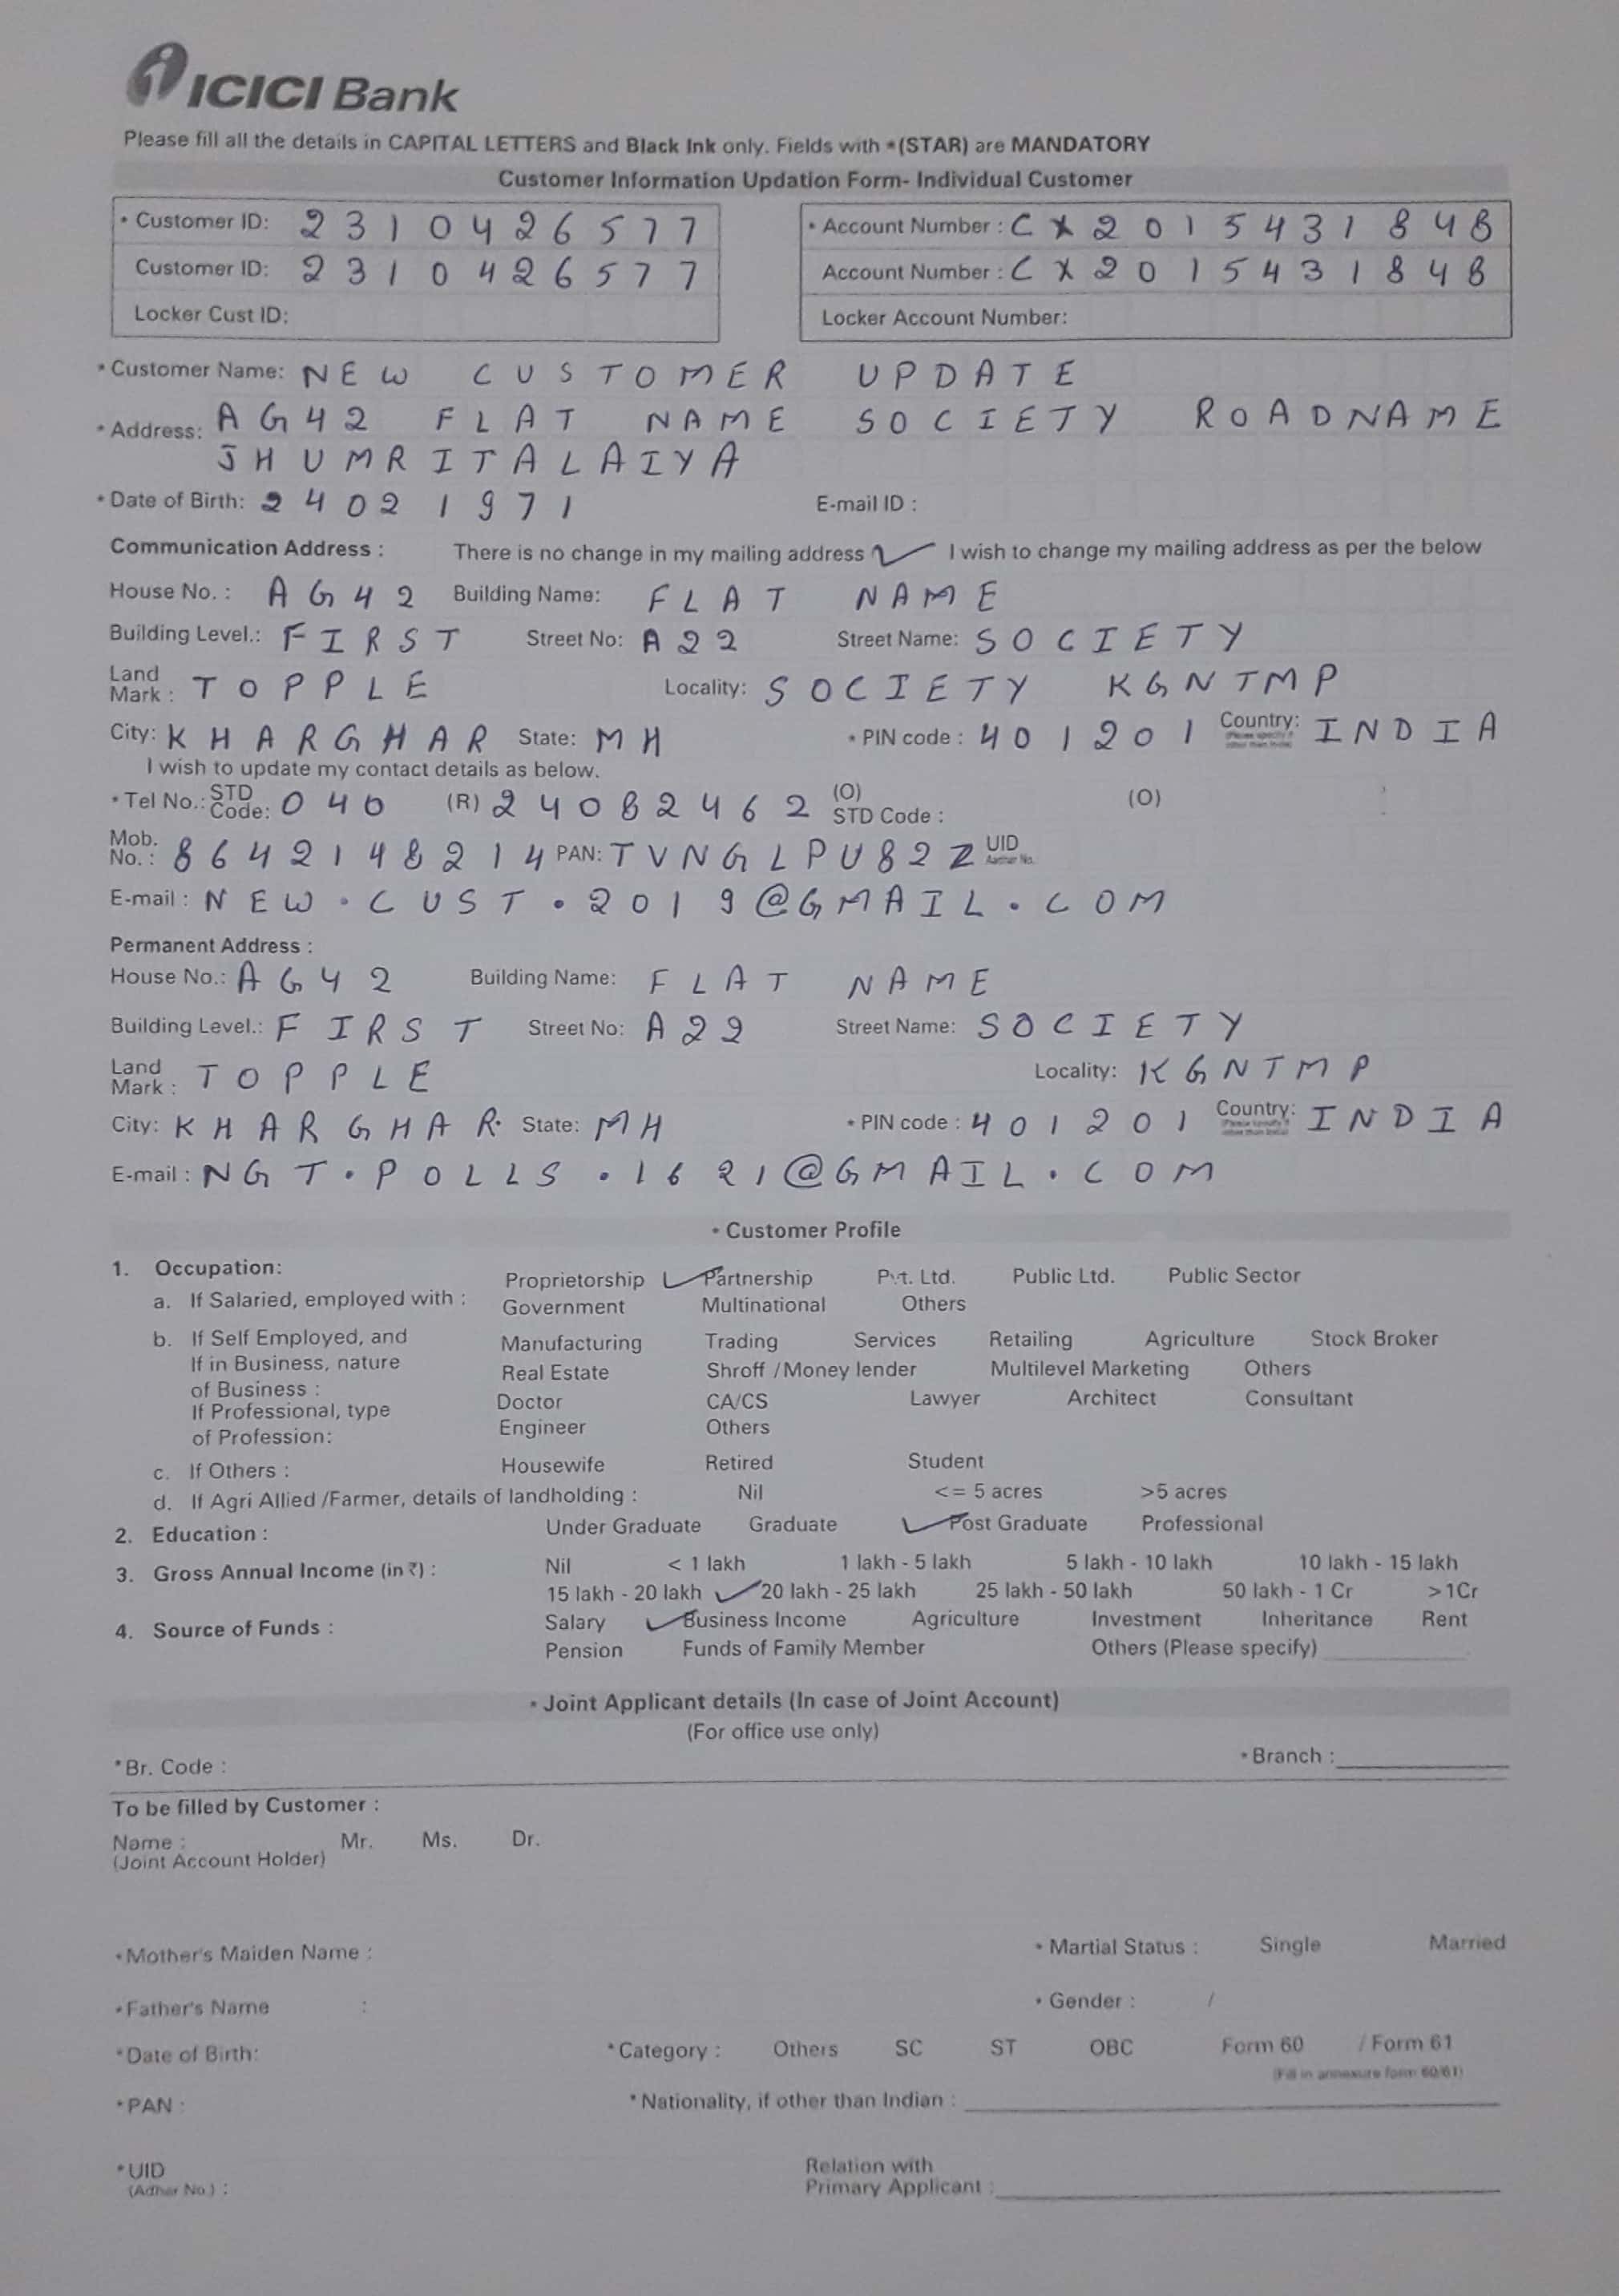 ICICI Bank
Please fill all the details in CAPITAL LETTERS and Black Ink only. Fields with *(STAR) are MANDATORY
Customer Information Updation Form- Individual Customer
* Customer ID: 2310426577 * Account Number : CX2015431848
Customer ID: 2310426577 Account Number : CX2015431848
Locker Cust ID: Locker Account Number:
* Customer Name: NEW CUSTOMER UPDATE
* Address: AG42 FLAT NAME SOCIETY ROADNAME
JHUMRITALAIYA
* Date of Birth: 24021971 E-mail ID :
Communication Address : There is no change in my mailing address ✓ I wish to change my mailing address as per the below
House No. : AG42 Building Name: FLAT NAME
Building Level.: FIRST Street No: A22 Street Name: SOCIETY
Land Mark : TOPPLE Locality: SOCIETY KGNTMP
City: KHARGHAR State: MH * PIN code : 401201 Country: (Please specify if other than India) INDIA
I wish to update my contact details as below.
* Tel No.: STD Code: 040 (R) 24082462 (O) STD Code : (O)
Mob. No. : 8642148214 PAN: TVNGLPU82Z UID Aadhar No.
E-mail : NEW.CUST.2019@GMAIL.COM
Permanent Address :
House No.: AG42 Building Name: FLAT NAME
Building Level.: FIRST Street No: A22 Street Name: SOCIETY
Land Mark : TOPPLE Locality: KGNTMP
City: KHARGHAR. State: MH * PIN code : 401201 Country: (Please specify if other than India) INDIA
E-mail : NGT.POLLS.1621@GMAIL.COM
* Customer Profile
1. Occupation:
a. If Salaried, employed with : Proprietorship ✓ Partnership Pvt. Ltd. Public Ltd. Public Sector
Government Multinational Others
b. If Self Employed, and Manufacturing Trading Services Retailing Agriculture Stock Broker
If in Business, nature Real Estate Shroff / Money lender Multilevel Marketing Others
of Business :
If Professional, type Doctor CA/CS Lawyer Architect Consultant
of Profession: Engineer Others
c. If Others : Housewife Retired Student
d. If Agri Allied /Farmer, details of landholding : Nil <= 5 acres >5 acres
2. Education : Under Graduate Graduate ✓ Post Graduate Professional
3. Gross Annual Income (in ₹) : Nil < 1 lakh 1 lakh - 5 lakh 5 lakh - 10 lakh 10 lakh - 15 lakh
15 lakh - 20 lakh ✓ 20 lakh - 25 lakh 25 lakh - 50 lakh 50 lakh - 1 Cr >1Cr
4. Source of Funds : Salary ✓ Business Income Agriculture Investment Inheritance Rent
Pension Funds of Family Member Others (Please specify)
* Joint Applicant details (In case of Joint Account)
(For office use only)
*Br. Code : * Branch :
To be filled by Customer :
Name : Mr. Ms. Dr.
(Joint Account Holder)
*Mother's Maiden Name : * Martial Status : Single Married
*Father's Name : * Gender : /
*Date of Birth: *Category : Others SC ST OBC Form 60 / Form 61
(Fill in annexure form 60/61)
*PAN : * Nationality, if other than Indian :
*UID Relation with
(Adhar No.) : Primary Applicant :